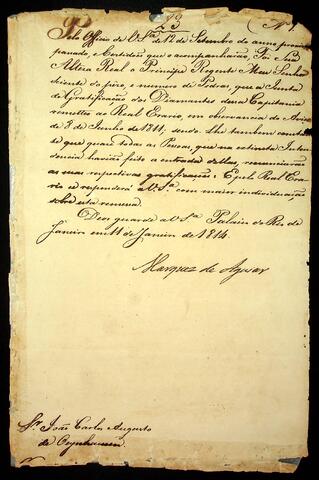 23
N. 1.
Pelo Officio de V. S.ª de 12 de Setembro do anno proximo
passado, e Certidões que o acompanharão, foi Sua
Alteza Real o Principe Regente Meu Senhor
sciente do pezo, e numero de Pedras, que a Junta
de Gratificação dos Diamantes dessa Capitania
remetteo ao Real Erario, em observancia do Aviso
de 8 de Junho de 1811, sendo lhe tambem constan-
te que quasi todas as Pessoas, que na extincta Inten
dencia havião feito a entrada dellas, renunciarão
as suas respectivas gratificações: E pelo Real Era-
rio se responderá a V. S.ª com maior individuação
sobre esta remessa.
Deos guarde a V. S.ª Palacio do Rio de
Janeiro em 11 de Janeiro de 1814.
Marquez de Aguiar
Sr. João Carlos Augusto
de Oeynhausen.